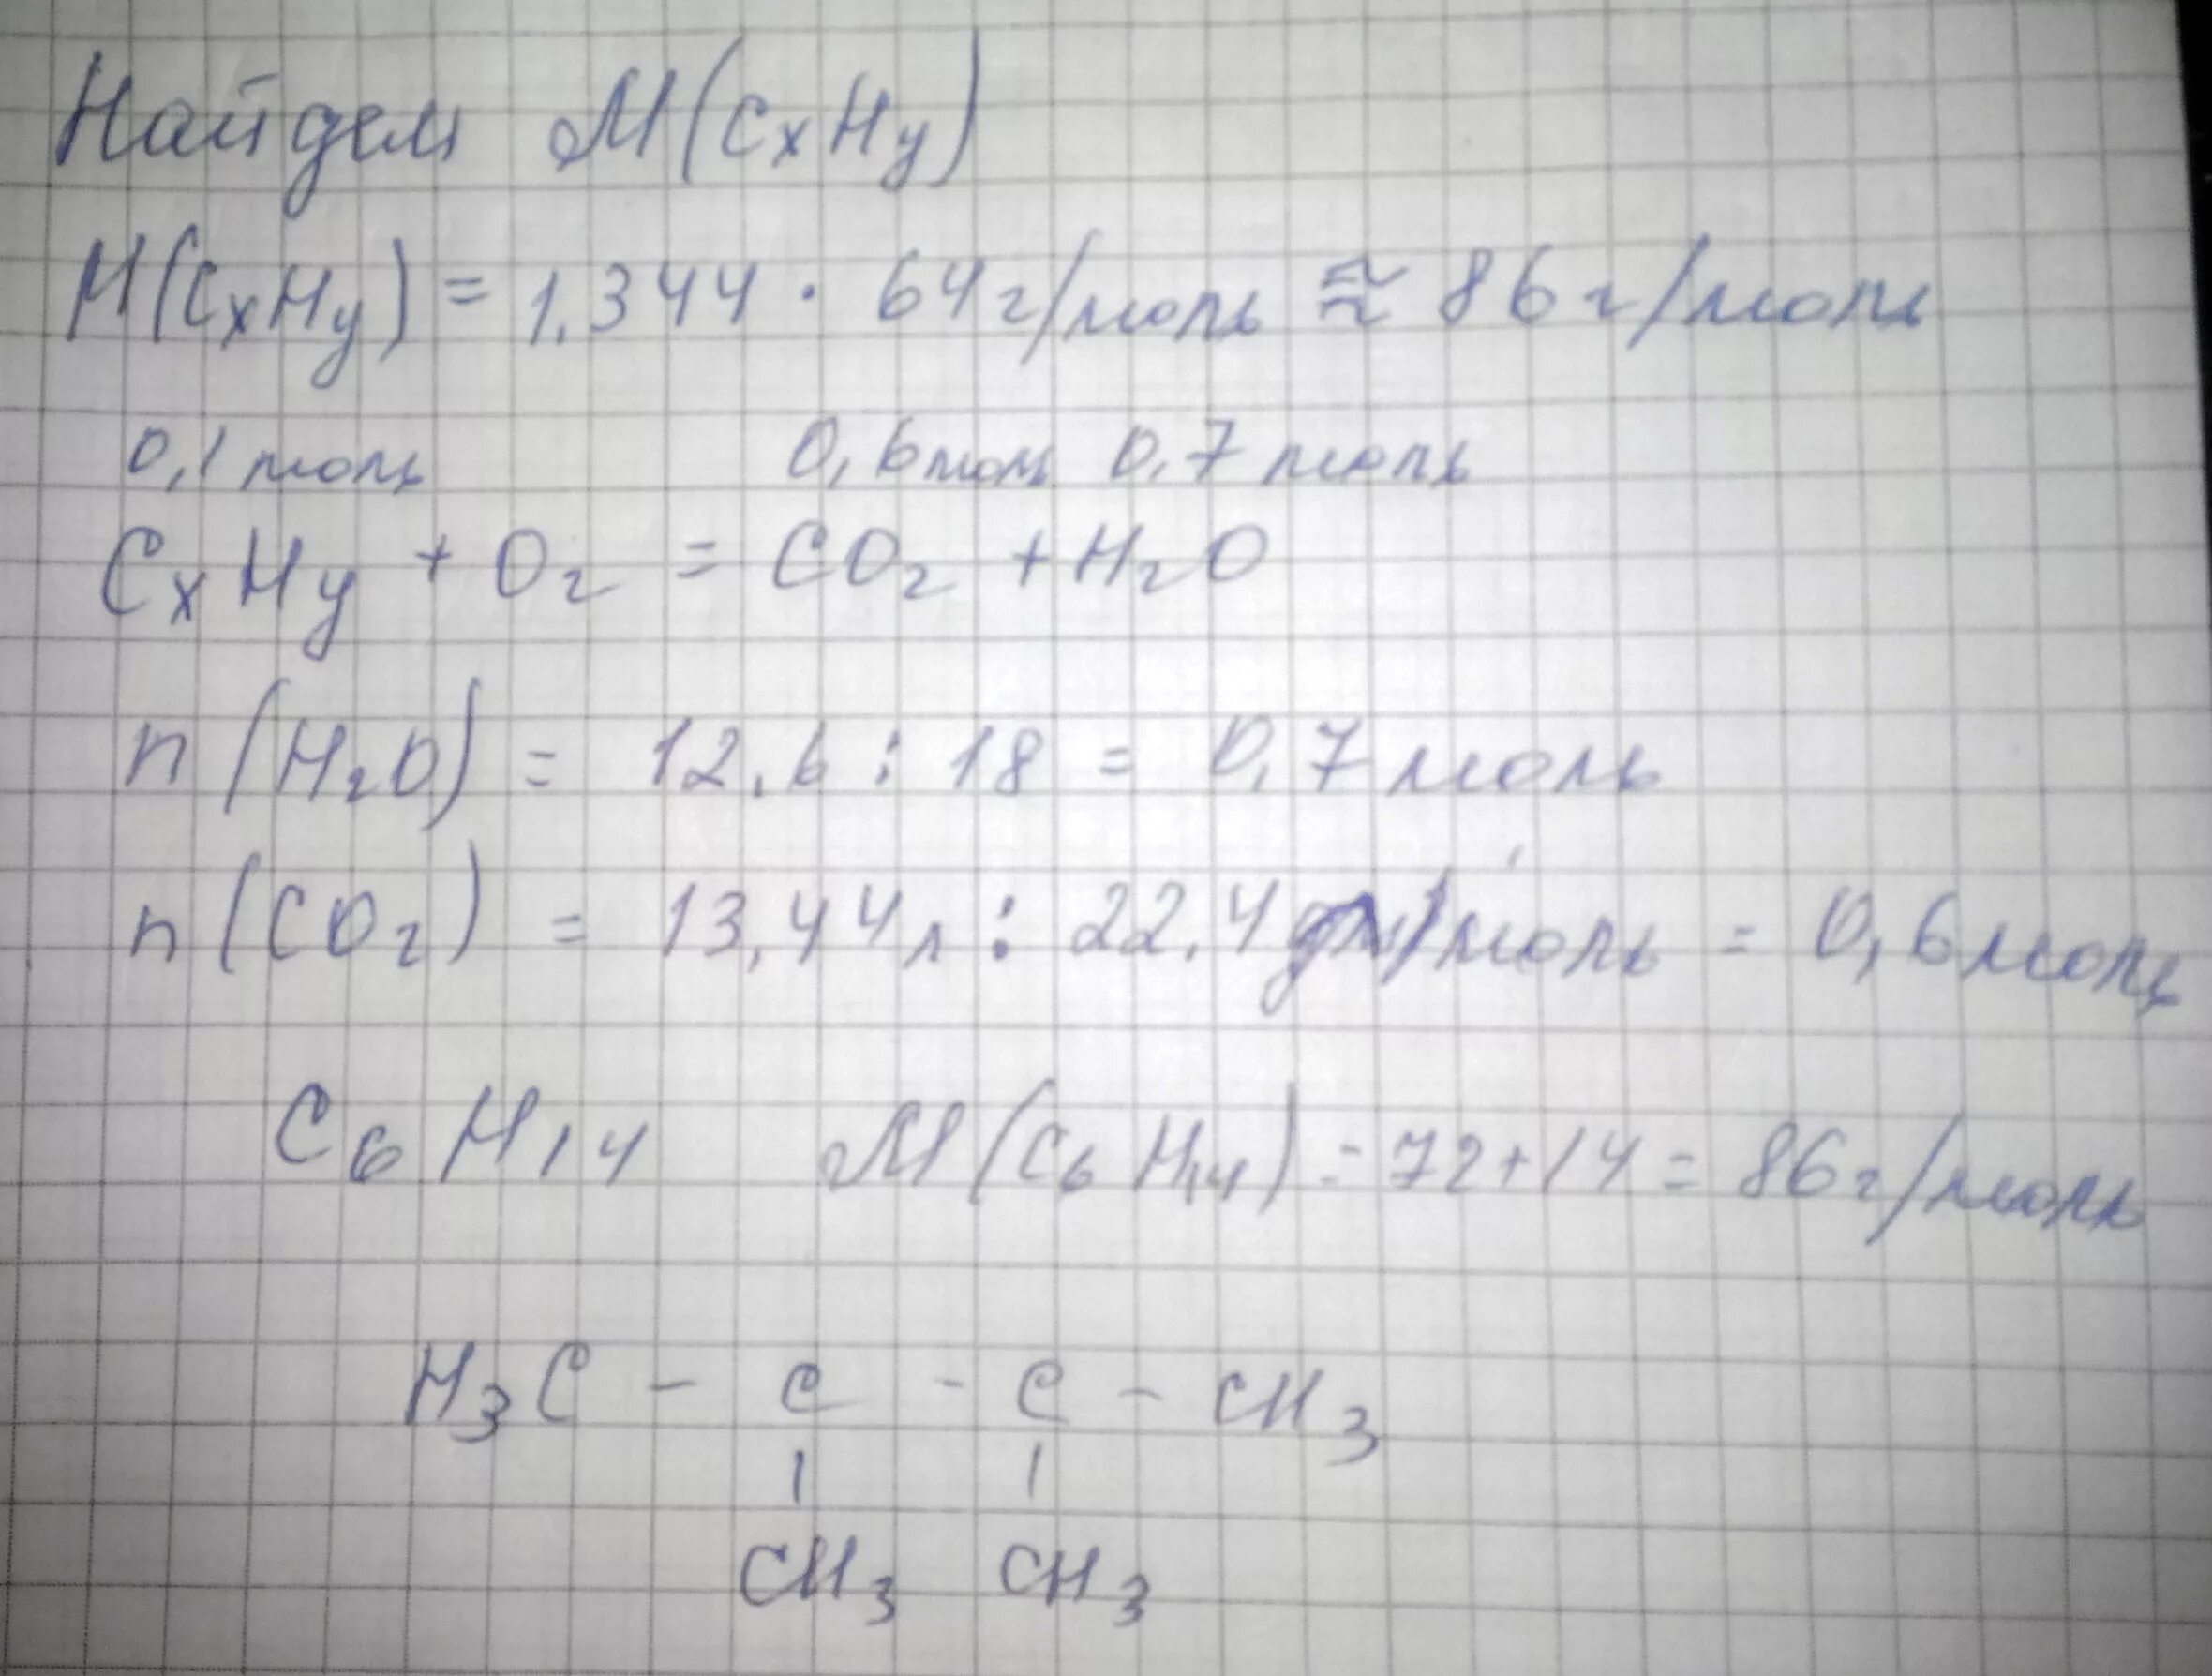 Найдем M(CxHy)
M(CxHy) = 1.344 · 64 г/моль ≈ 86 г/моль
0,1 моль 0,6 моль 0,7 моль
CxHy + O2 = CO2 + H2O
n(H2O) = 12.6 : 18 = 0,7 моль
n(CO2) = 13,44 л : 22.4 /моль = 0,6 моль
C6H14 M(C6H14) = 72+14 = 86 г/моль
H3C - C - C - CH3
CH3 CH3